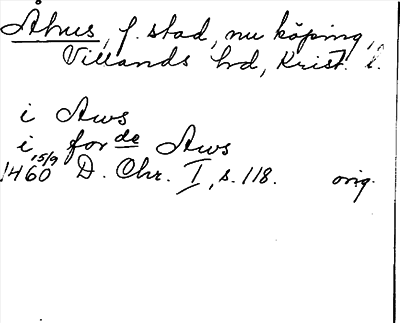 Åhus, f. stad, nu köping,
Villands hd, Krist. l.
i Aws
i for de Aws
1460 15/9 D. Chr. I, s. 118. orig.